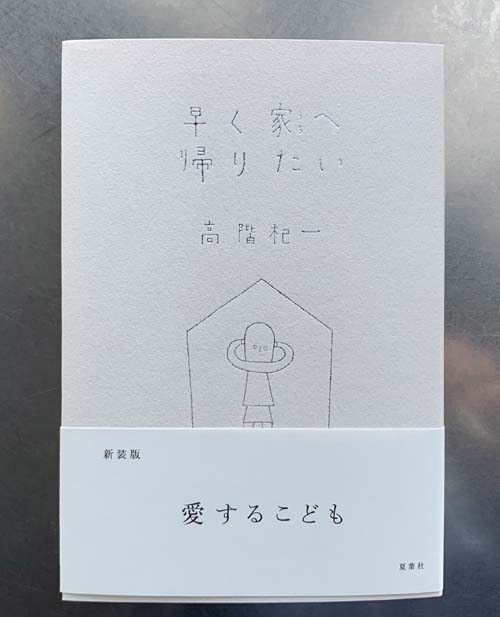 早く家へ
うち
帰りたい
高階杞一
新装版
愛するこども
夏葉社